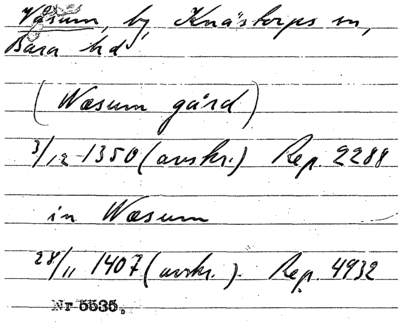 Väsum, by, Knästorps sn,
Bara hd
(Wæsum gård)
3/12 1350 (avskr.) Rep. 2288
in Wæsum
28/11 1407 (avskr.) Rep. 4932
Nr 5535.